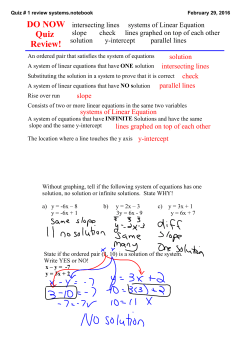 Quiz # 1 review systems.notebook
February 29, 2016
DO NOW
Quiz
Review!
intersecting lines systems of Linear Equation
slope check lines graphed on top of each other
solution y-intercept parallel lines
An ordered pair that satisfies the system of equations solution
A system of linear equations that have ONE solution intersecting lines
Substituting the solution in a system to prove that it is correct check
A system of linear equations that have NO solution parallel lines
Rise over run slope
Consists of two or more linear equations in the same two variables
systems of Linear Equation
A system of equations that have INFINITE Solutions and have the same
slope and the same y-intercept lines graphed on top of each other
The location where a line touches the y axis y-intercept
Without graphing, tell if the following system of equations has one
solution, no solution or infinite solutions. State WHY!
a) y = -6x - 8 b) y = 2x - 3 c) y = 3x + 1
y = -6x + 1 3y = 6x - 9 y = 6x + 7
same slope
|| no solution
3 3 3
y = 2x - 3
same
many
diff
slope
One solution
State if the ordered pair (3, 10) is a solution of the system.
Write YES or NO!
x - y = -7
y = 3x + 2
x - y = -7
3 - 10 = -7
-7 = -7 √
y = 3x + 2
10 = 3(3) + 2
10 = 11 X
No solution